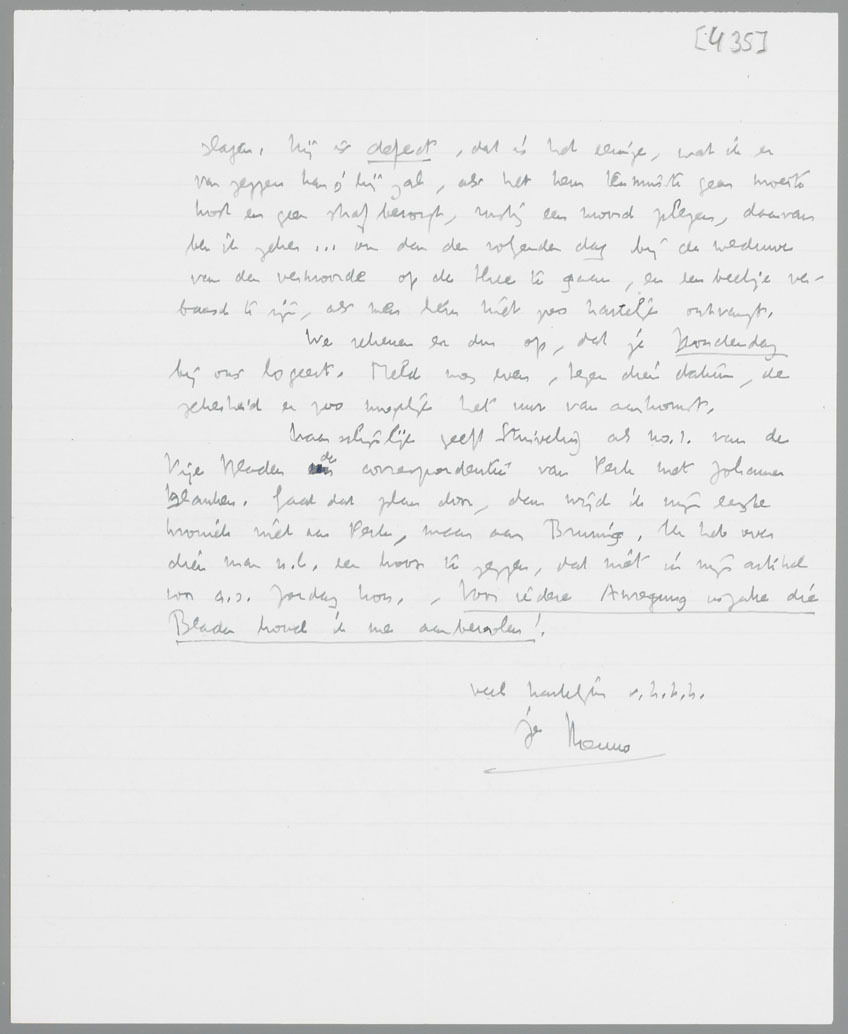 [435]
slagen. Hij is defect, dat is het eenige, wat ik er
van zeggen kan; hij zal, als het hem tenminste geen moeite
kost en geen straf bezorgt, rustig een moord plegen, daarvan
ben ik zeker... om dan den volgenden dag bij de weduwe
van den vermoorde op de thee te gaan, en een beetje ver-
baasd te zijn, als men hem niet zoo hartelijk ontvangt.
We rekenen er dus op, dat je Donderdag
bij ons logeert. Meld nog even, tegen dien datum, de
zekerheid en zoo mogelijk het uur van aankomst.
Waarschijnlijk geeft Stuiveling als no. 1. van de
Vrije Bladen de correspondentie van Perk met Johanna
Blancken. Gaat dat plan door, dan wijd ik mijn eerste
kroniek niet aan Perk, maar aan Bruning. Ik heb over
dien man n.l. een hoop te zeggen, dat niet in mijn artikel
van a.s. Zondag kon. Voor iedere Anregung inzake die
Bladen houd ik me aanbevolen!
veel hartelijks v.h.t.h.
je Menno